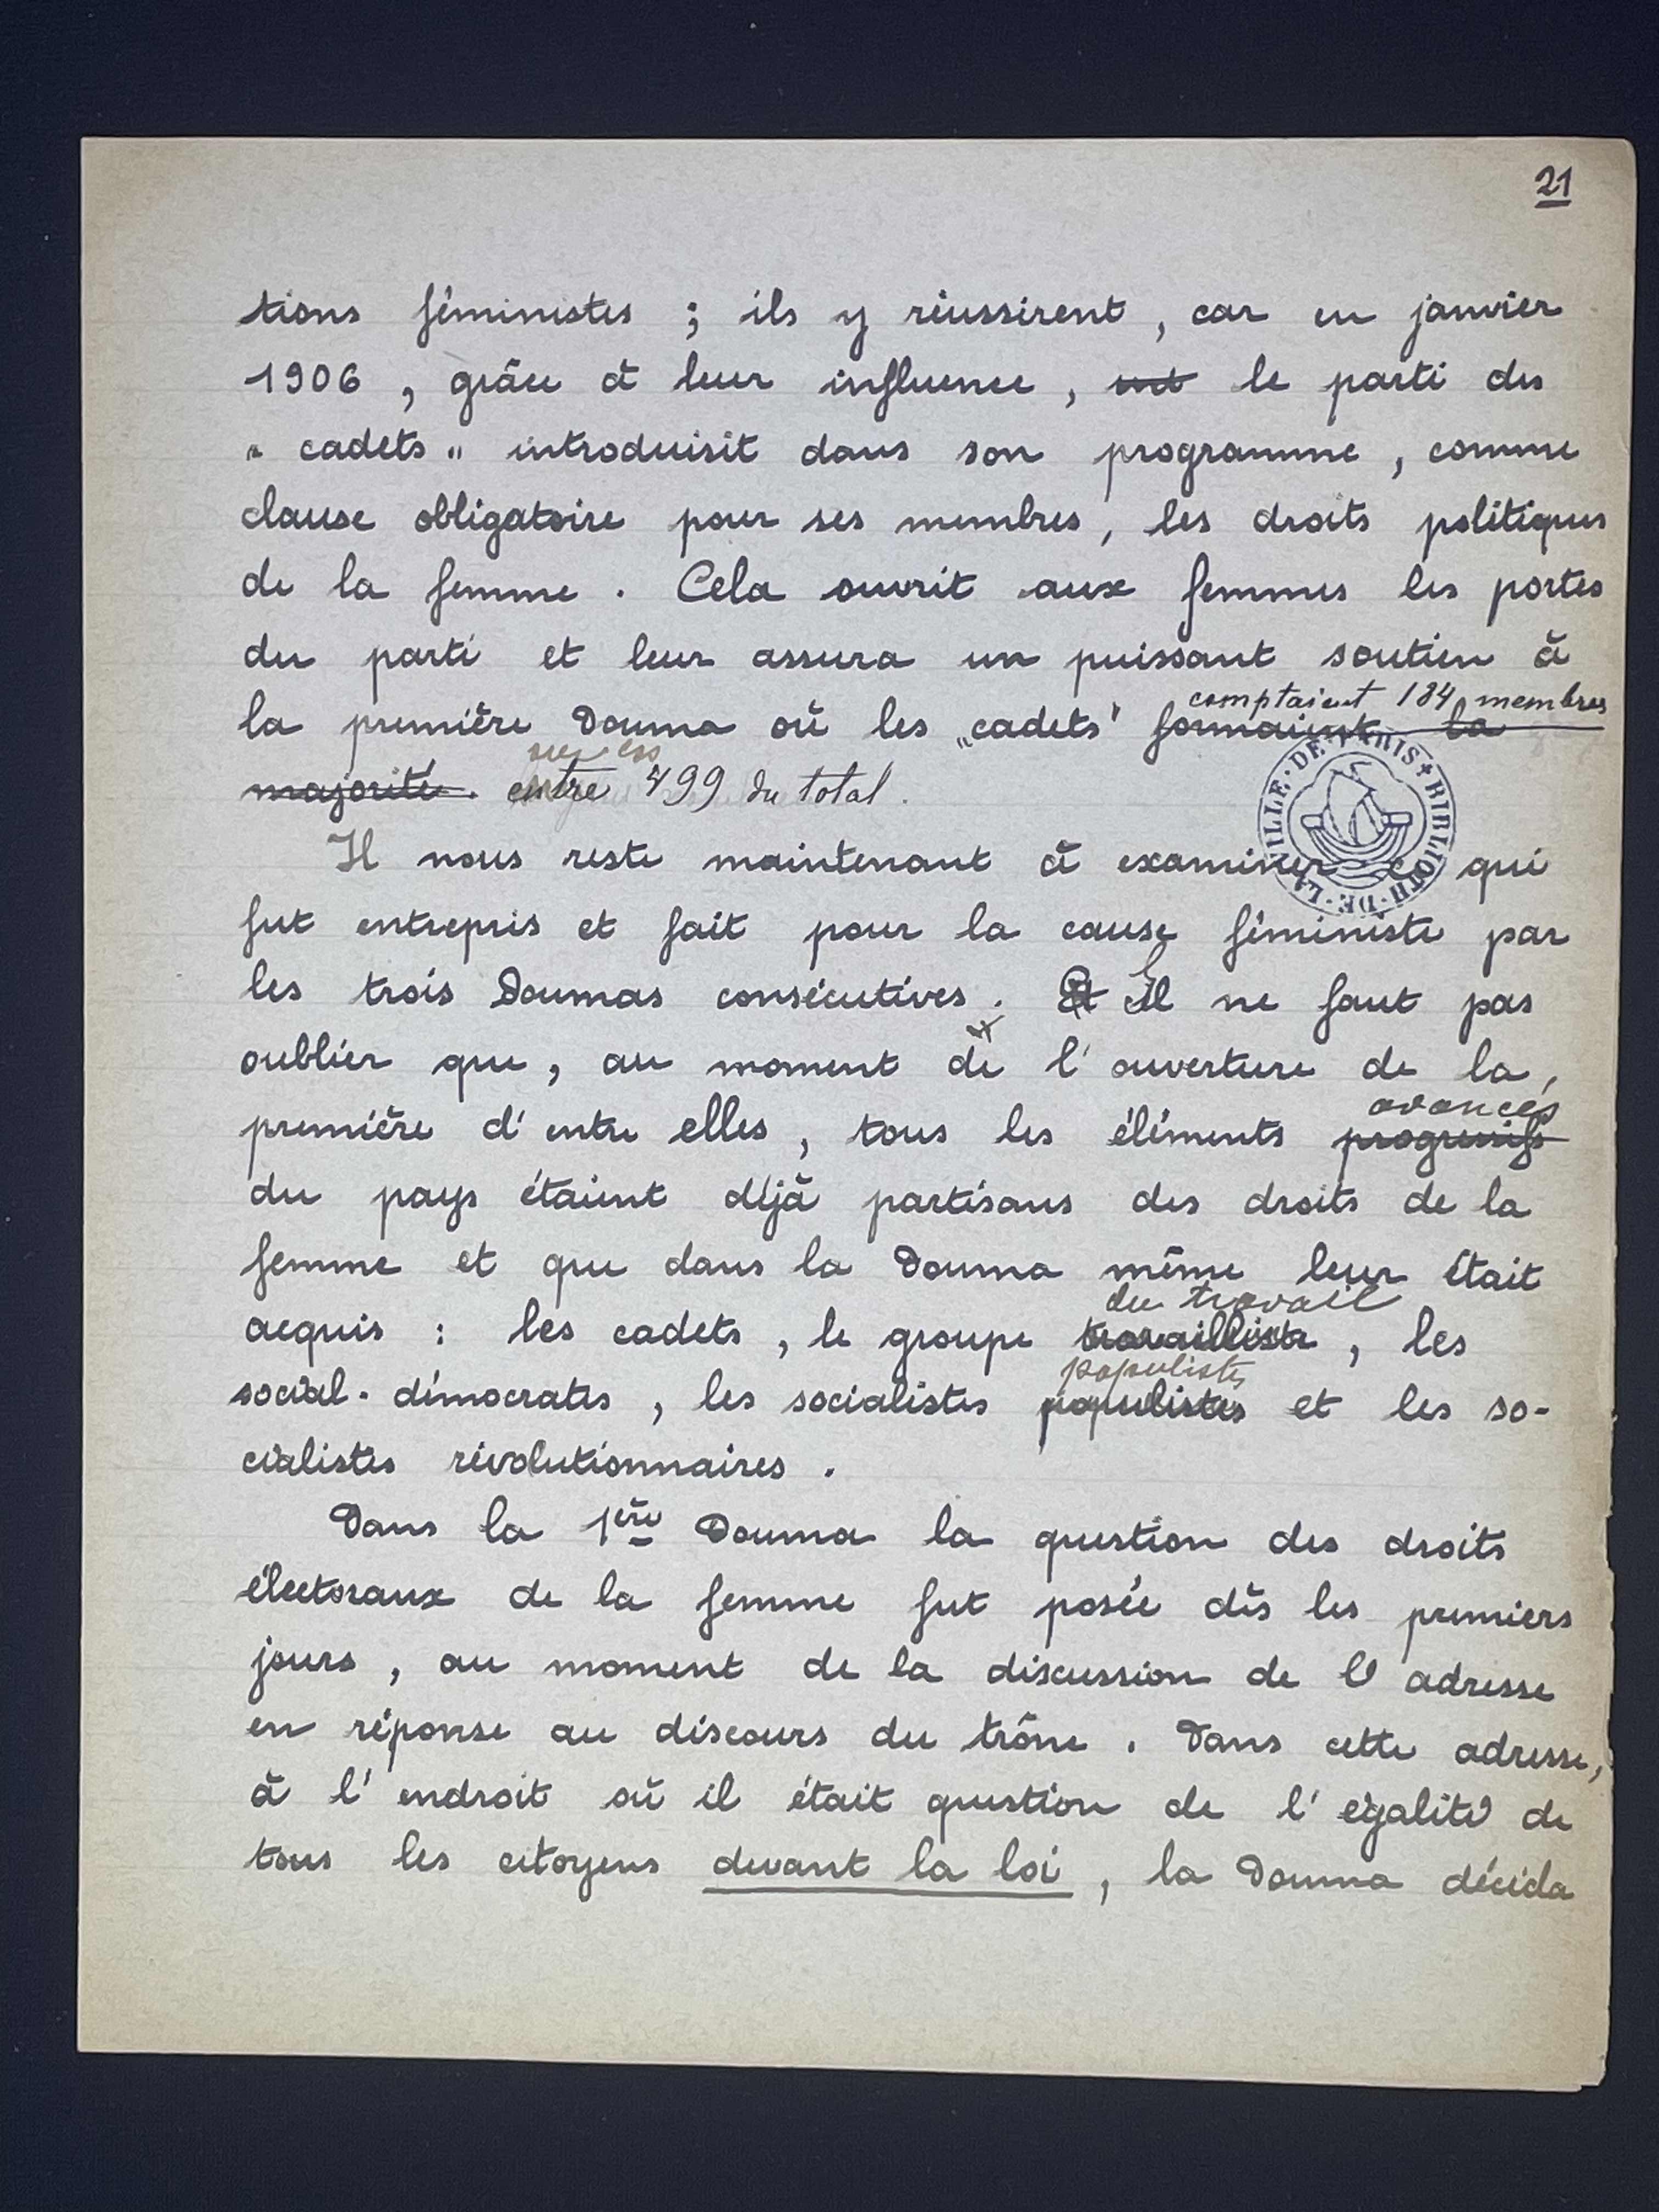 21
tions féministes ; ils y réussirent, car en janvier
1906, grâce à leur influence, le parti des
" cadets " introduisit dans son programme, comme
clause obligatoire pour ses membres, les droits politiques
de la femme. Cela ouvrit aux femmes les portes
du parti et leur assura un puissant soutien à
comptaient 184 membres
la première Douma où les „cadets' formaient la
sur les
majorité. entre 499 du total.
Il nous reste maintenant à examiner ce qui
fut entrepris et fait pour la cause féministe par
les trois Doumas consécutives. Et Il ne faut pas
oublier que, au moment de l'ouverture de la,
avancés
première d'entre elles, tous les éléments progressifs
du pays étaient déjà partisans des droits de la
femme et que dans la Douma même leur était
du travail
acquis : les cadets, le groupe travailliste, les
populistes
social-démocrates, les socialistes populistes et les so-
cialistes révolutionnaires.
Dans la 1ère Douma la question des droits
électoraux de la femme fut posée dès les premiers
jours, au moment de la discussion de l'adresse
en réponse au discours du trône. Dans cette adresse,
à l'endroit où il était question de l'égalité de
tous les citoyens devant la loi, la Douma décida
BIBLIOTH · DE · LA VILLE · DE · PARIS